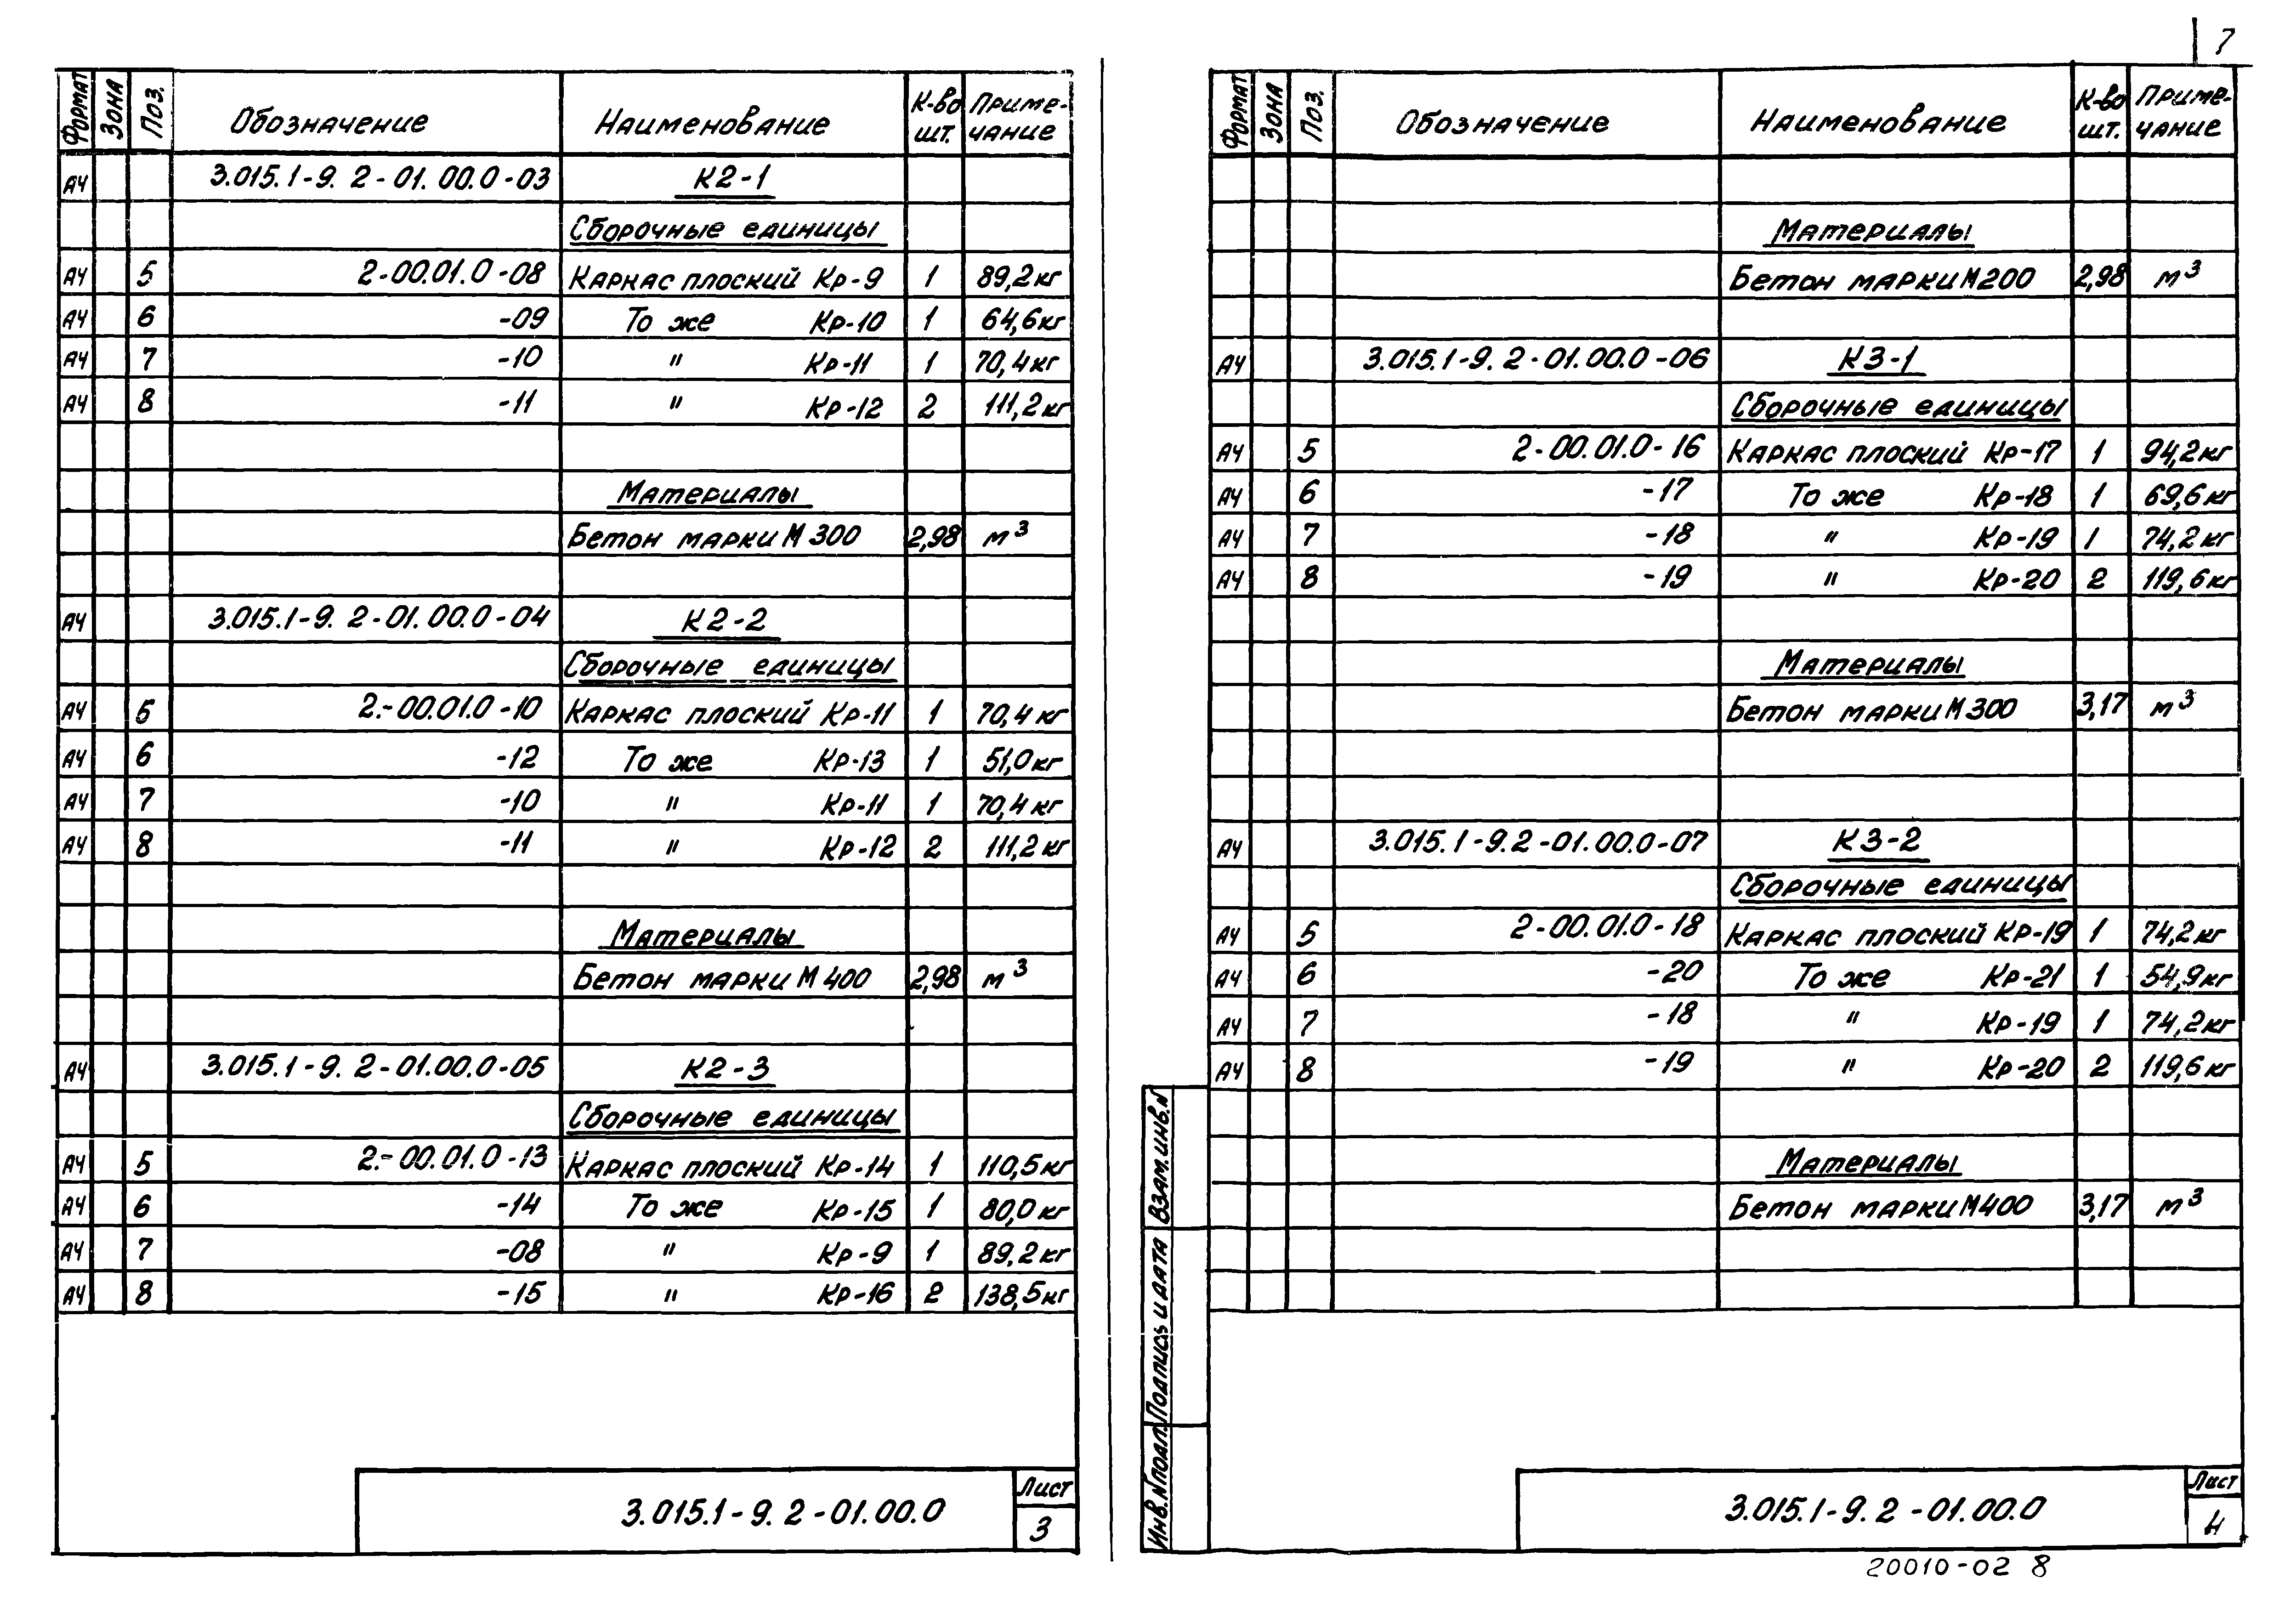 7
Формат Зона Поз. Обозначение Наименование К-во шт. Приме-чание
А4 3.015.1-9. 2-01.00.0-03 К2-1
Сборочные единицы
А4 5 2-00.01.0-08 Каркас плоский Кр-9 1 89,2кг
А4 6 -09 То же Кр-10 1 64,6кг
А4 7 -10 " Кр-11 1 70,4кг
А4 8 -11 " Кр-12 2 111,2кг
Материалы
Бетон марки М300 2,98 м³
А4 3.015.1-9. 2-01.00.0-04 К2-2
Сборочные единицы
А4 5 2.-00.01.0-10 Каркас плоский Кр-11 1 70,4 кг
А4 6 -12 То же Кр-13 1 51,0кг
А4 7 -10 " Кр-11 1 70,4кг
А4 8 -11 " Кр-12 2 111,2кг
Материалы
Бетон марки М400 2,98 м³
А4 3.015.1-9. 2-01.00.0-05 К2-3
Сборочные единицы
А4 5 2.-00.01.0-13 Каркас плоский Кр-14 1 110,5кг
А4 6 -14 То же Кр-15 1 80,0кг
А4 7 -08 " Кр-9 1 89,2кг
А4 8 -15 " Кр-16 2 138,5кг
3.015.1-9. 2-01.00.0
Лист
3
Формат Зона Поз. Обозначение Наименование К-во шт. Приме-чание
Материалы
Бетон марки М200 2,98 м³
А4 3.015.1-9. 2-01.00.0-06 К3-1
Сборочные единицы
А4 5 2-00.01.0-16 Каркас плоский Кр-17 1 94,2кг
А4 6 -17 То же Кр-18 1 69,6кг
А4 7 -18 " Кр-19 1 74,2кг
А4 8 -19 " Кр-20 2 119,6кг
Материалы
Бетон марки М300 3,17 м³
А4 3.015.1-9.2-01.00.0-07 К3-2
Сборочные единицы
А4 5 2-00.01.0-18 Каркас плоский Кр-19 1 74,2кг
А4 6 -20 То же Кр-21 1 54,9кг
А4 7 -18 " Кр-19 1 74,2кг
А4 8 -19 " Кр-20 2 119,6кг
Материалы
Бетон марки М400 3,17 м³
Взам.инв.N
Подпись и дата
Инв.Nподл.
3.015.1-9. 2-01.00.0
Лист
4
20010-02 8